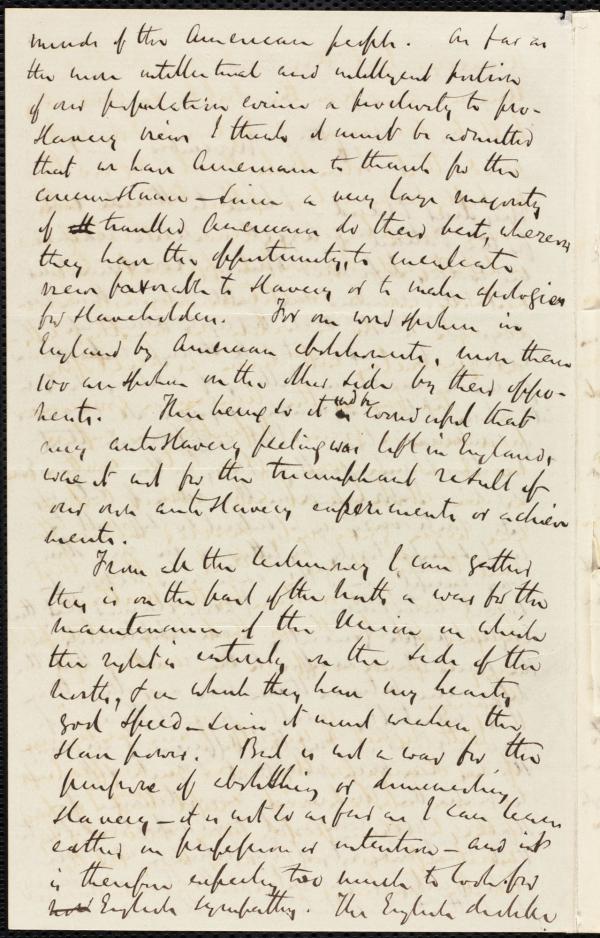 minds of the American people. As far as
the more intellectual and intelligent portion
of our population evince a proclivity to pro-
slavery views I think it must be admitted
that we have Americans to thank for the
circumstance – since a very large majority
of travelled Americans do their best, wherever
they have the opportunity, to inculcate
views favorable to slavery or to make apologies
for slaveholders. For one word spoken in
England by American abolitionists, more than
100 are spoken on the other side by their oppo-
nents. This being so it would be wonderful that
any antislavery feeling was left in England,
were it not for the triumphant result of
our own antislavery experiments or achieve
ments.
From all the testimony I can gather
this is on the part of the North a war for the
maintenance of the Union in which
the right is entirely on the side of the
North, & in which they have my hearty
God speed – since it must weaken the
slave power. But is not a war for the
purpose of abolishing or diminishing
slavery – it is not so as far as I can learn
either in profession or intention – and it
is therefore expecting too much to look for
English sympathy. The English dislike